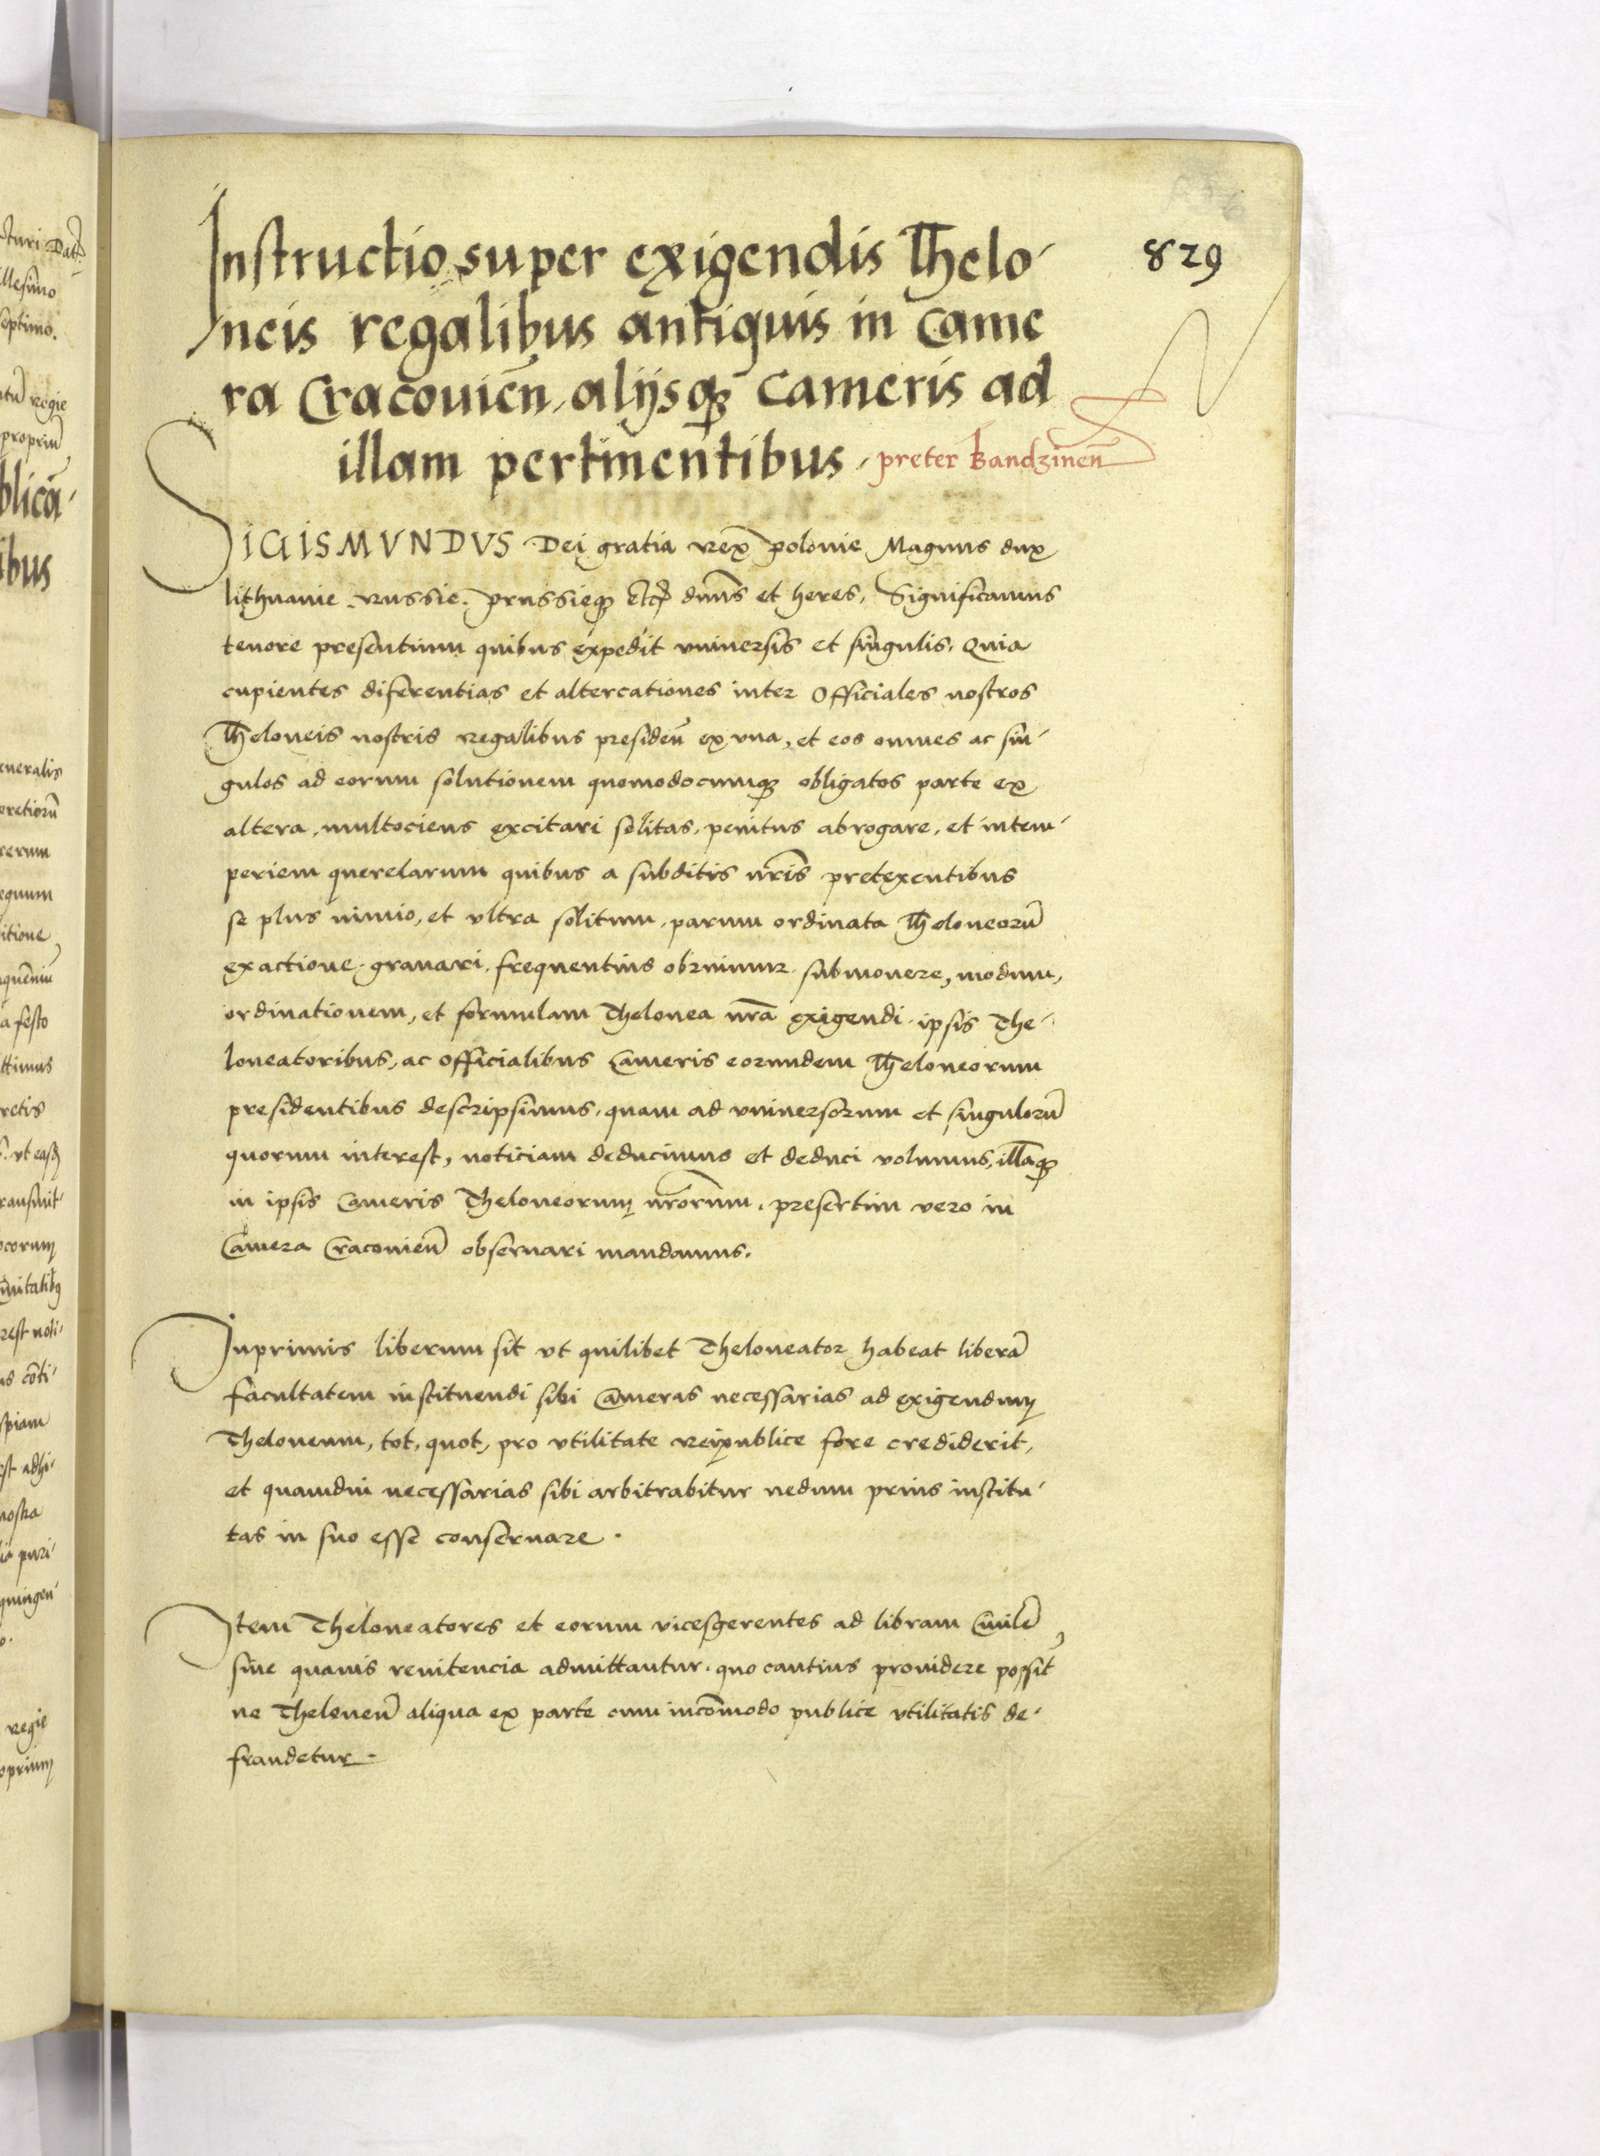 829
Instructio super exigendis Thelo-
neis regalibus antiquis in Came
ra Cracouien̄, alijsqꝫ Cameris ad
illam pertinentibus, preter Bandzinen̄
SIGISMVNDVS Dei gratia Rex polonie Magnus dux
lithuanie. Russie. prussieqꝫ etcꝫ dn̄s et heres, Significamus
tenore presentium quibus expedit vniuersis et singulis. Quia
cupientes diferentias et altercationes inter Officiales nostros
Theloneis nostris regalibus presiden̄ ex vna, et eos omnes ac sin-
gulos ad eorum solutionem quomodocumqꝫ obligatos parte ex
altera, multociens excitari solitas, penitus abrogare, et intem-
periem querelarum quibus a subditis nr̄is pretexentibus
se plus nimio, et vltra solitum, parum ordinata Theloneorū
exactione, grauari, frequentius obruimur, submouere, modum,
ordinationem, et formulam Thelonea nr̄a exigendi, ipsis The-
loneatoribus, ac Officialibus Cameris eorundem Theloneorum
presidentibus descripsimus, quam ad vniuersorum et singulorū
quorum interest, noticiam deducimus et deduci volumus, illāqꝫ
in ipsis Cameris Theloneorum nr̄orum, presertim vero in
Camera Cracouien̄ obseruari mandamus.
Inprimis liberum sit vt quilibet Theloneator habeat liberā
facultatem instituendi sibi Cameras necessarias ad exigendum
Theloneum, tot, quot, pro vtilitate Reipublice fore crediderit,
et quamdiu necessarias sibi arbitrabitur nedum prius institu-
tas in suo esse conseruare.
Item Theloneatores et eorum vicesgerentes ad libram Ciuilē
sine quauis renitencia admittantur, quo cautius prouidere possīt
ne Theloneū aliqua ex parte cum incōmodo publice vtilitatis de-
fraudetur.